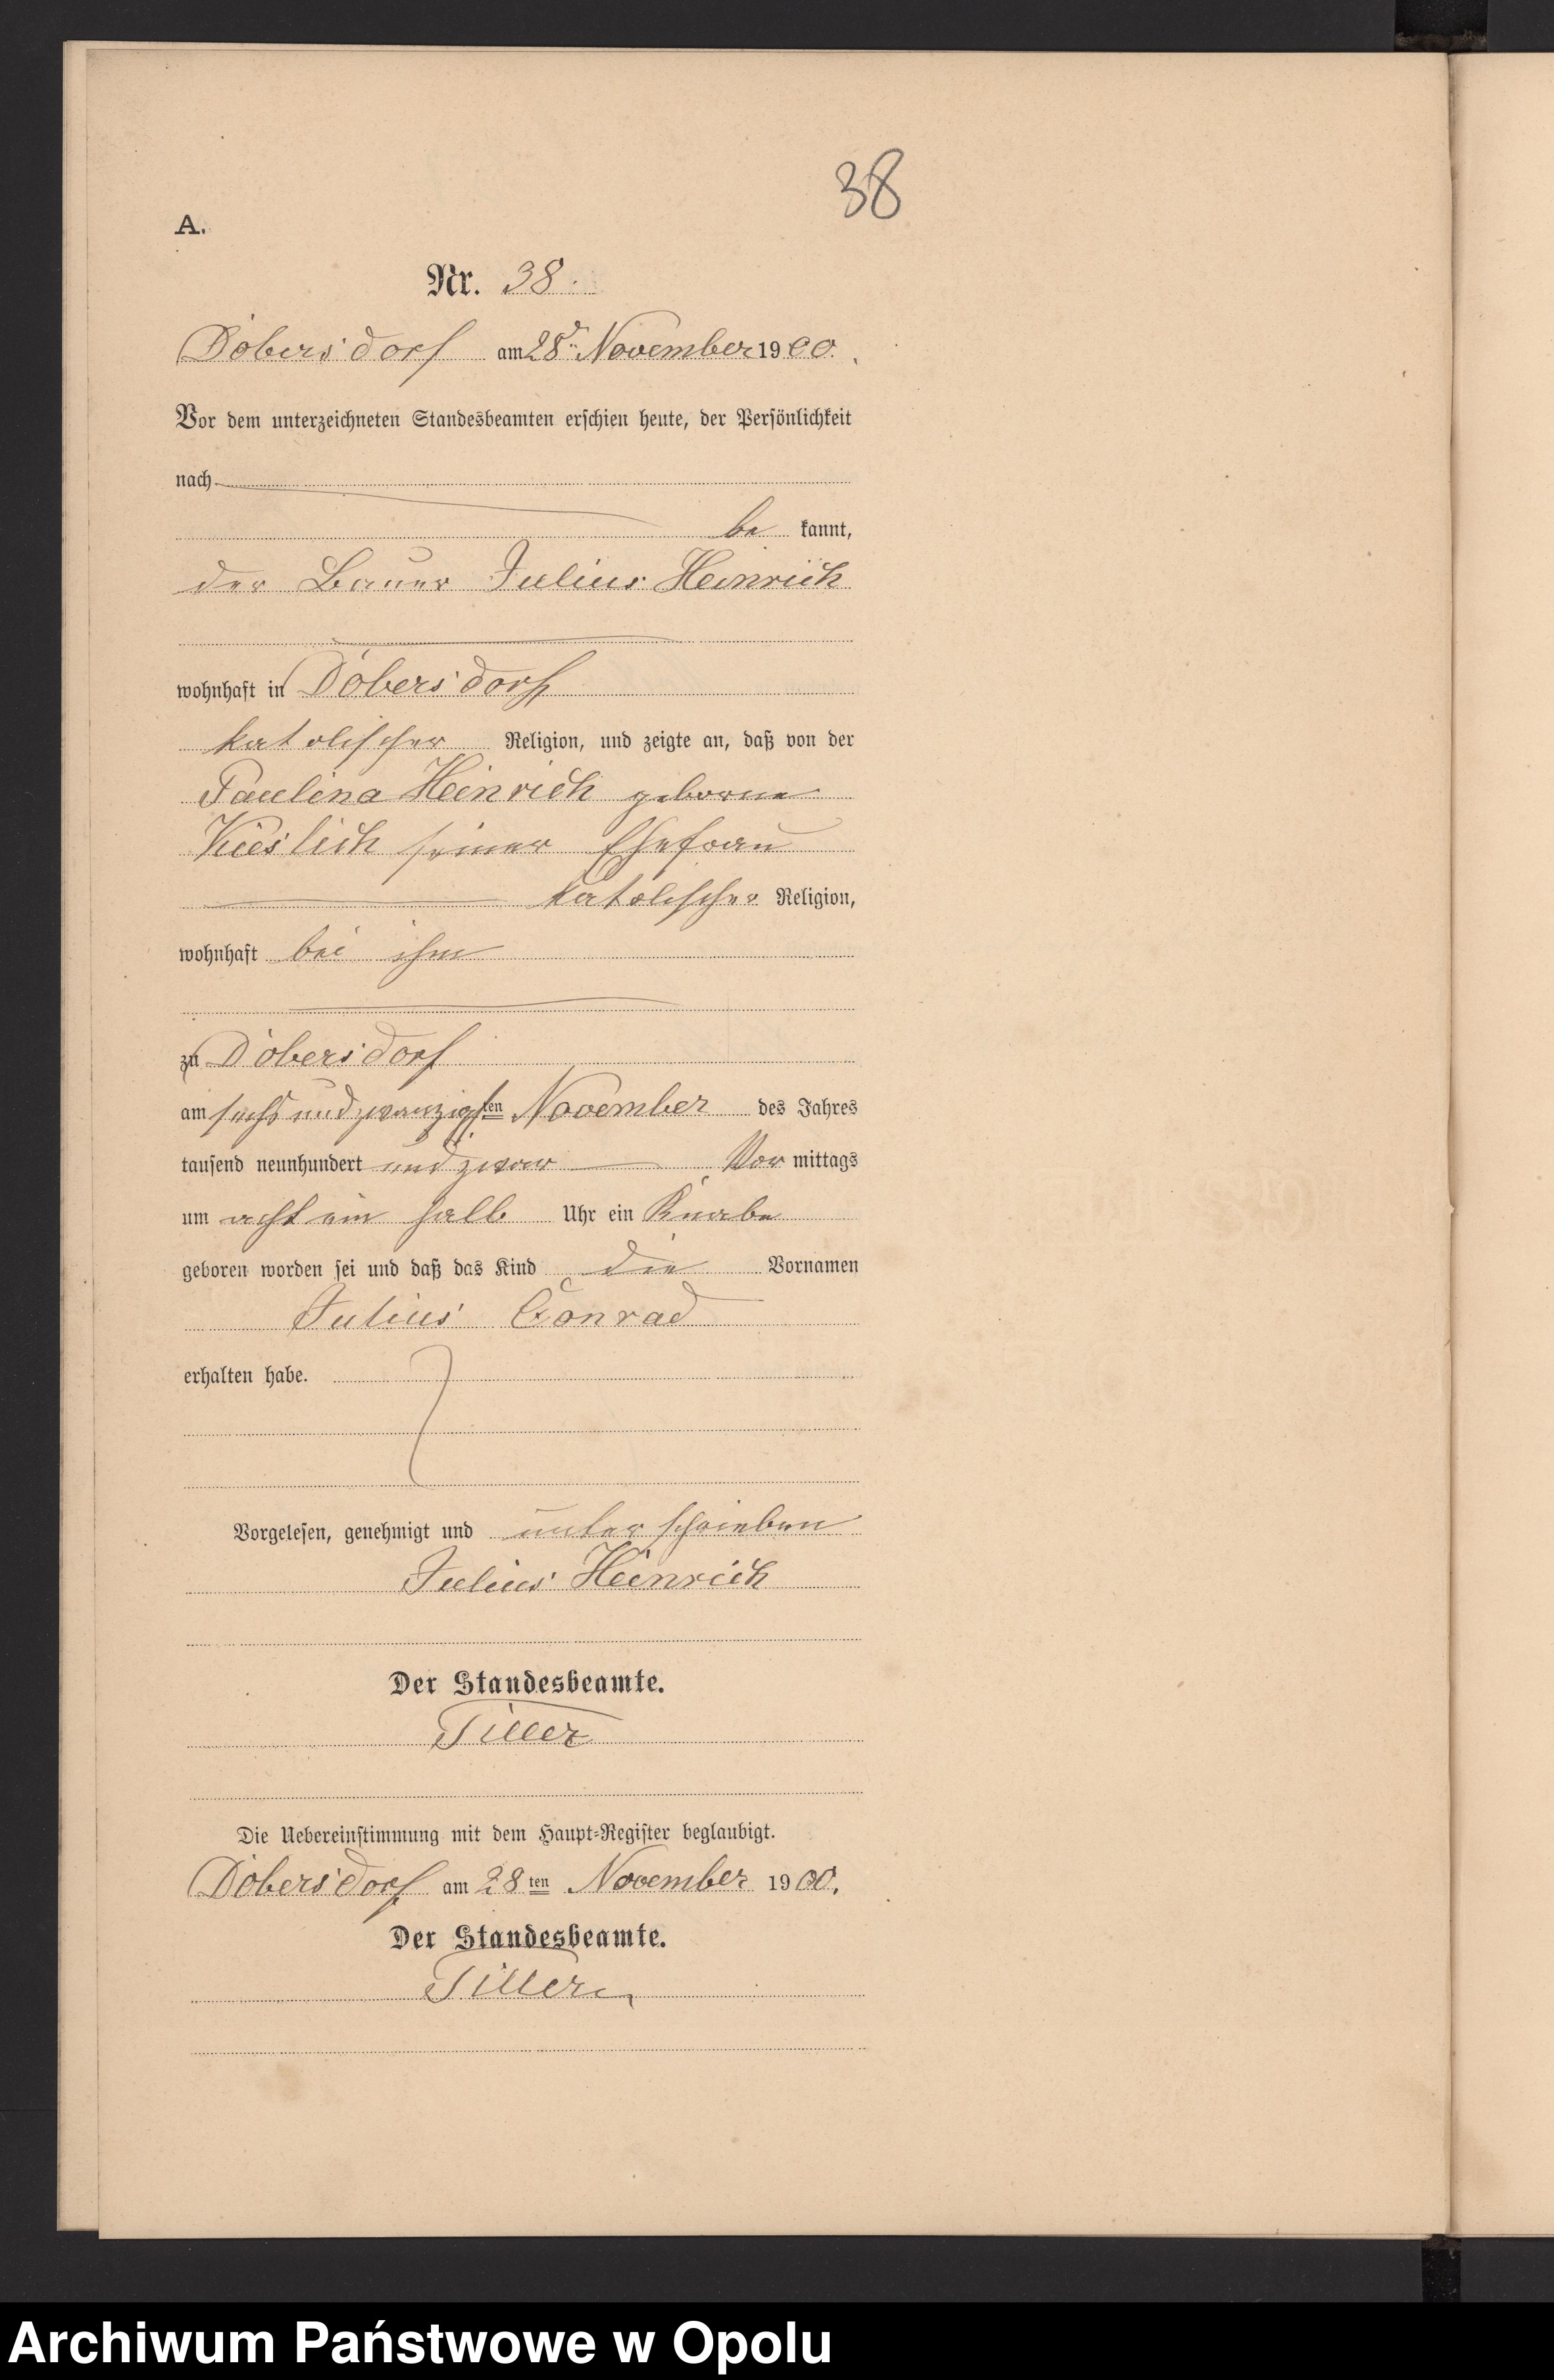 38
A.
Nr. 38.
Dobersdorf am 28ten November 1900.
Vor dem unterzeichneten Standesbeamten erschien heute, der Persönlichkeit
nach
be kannt,
der Bauer Julius Heinrich
wohnhaft in Dobersdorf
katolischer Religion, und zeigte an, daß von der
Paulina Heinrich geborne
Kieslich seiner Ehefrau
katolischer Religion,
wohnhaft bei ihm
zu Dobersdorf
am sechs und zwanzigsten November des Jahres
tausend neunhundert und zwar Vor mittags
um acht ein halb Uhr ein Knabe
geboren worden sei und daß das Kind die Vornamen
Julius Conrad
erhalten habe.
Vorgelesen, genehmigt und unterschrieben
Julius Heinrich
Der Standesbeamte.
Tiller
Die Uebereinstimmung mit dem Haupt-Register beglaubigt.
Dobersdorf am 28 ten November 1900.
Der Standesbeamte.
Tiller
Archiwum Państwowe w Opolu